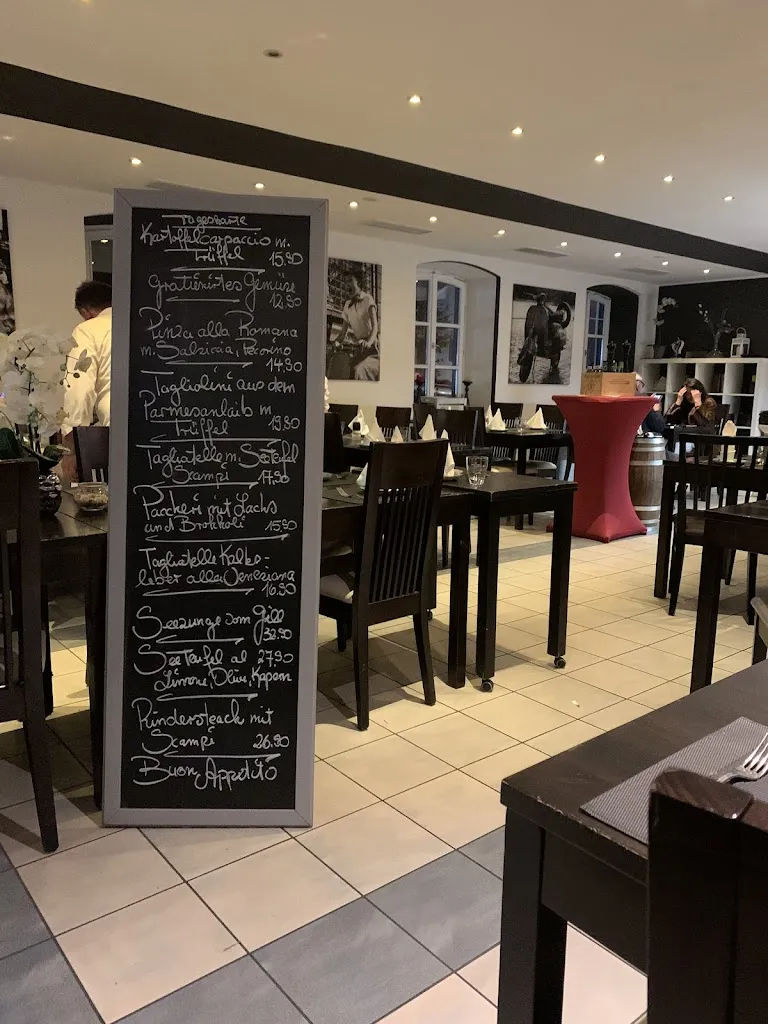 Tageskarte
Kartoffelcarpaccio m.
Trüffel 15,90
Gratiniertes Gemüse
12,90
Pinza alla Romana
m. Salsicia, Pecorino
14,90
Tagliolini aus dem
Parmesanlaib m
Trüffel 19,80
Tagliatelle m. Seeteufel
Scampi 17,90
Paccheri mit Lachs
und Brokkoli 15,90
Tagliatelle Kalbs-
leber alla Veneziana
16,90
Seezunge vom Grill
32,90
SeeTeufel al 27,90
Limone, Olive, Kapern
Rindersteack mit
Scampi 26.90
Buon Appetito